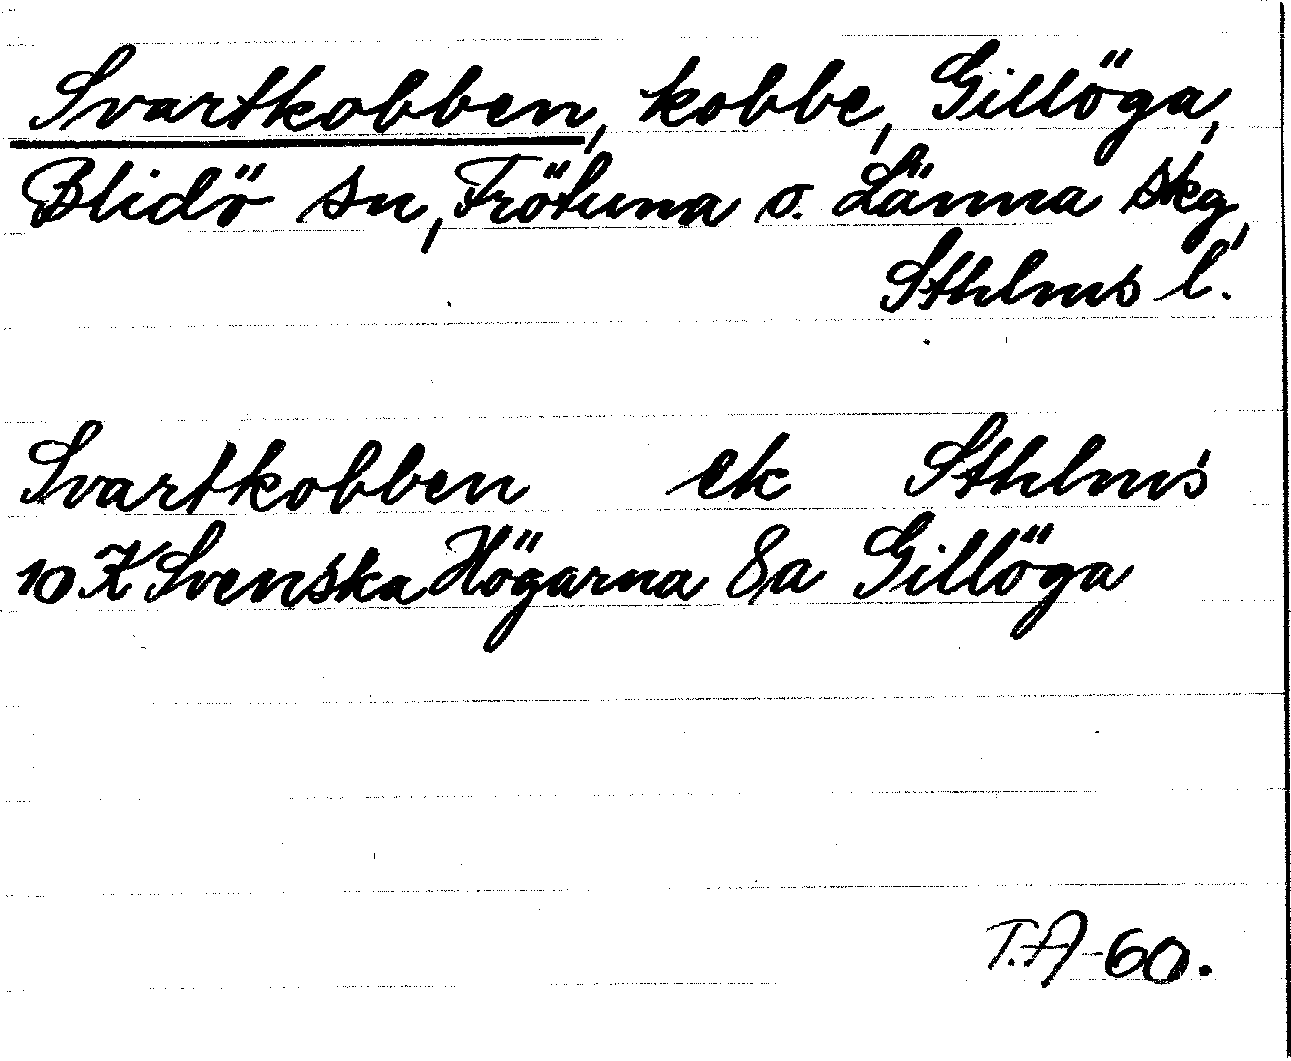 Svartkobben, kobbe, Gillöga,
Blidö sn, Frötuna o. Länna skg,
Sthlms l.
Svartkobben ek Sthlms
10 K Svenska Högarna 8a Gillöga
T.A-60.